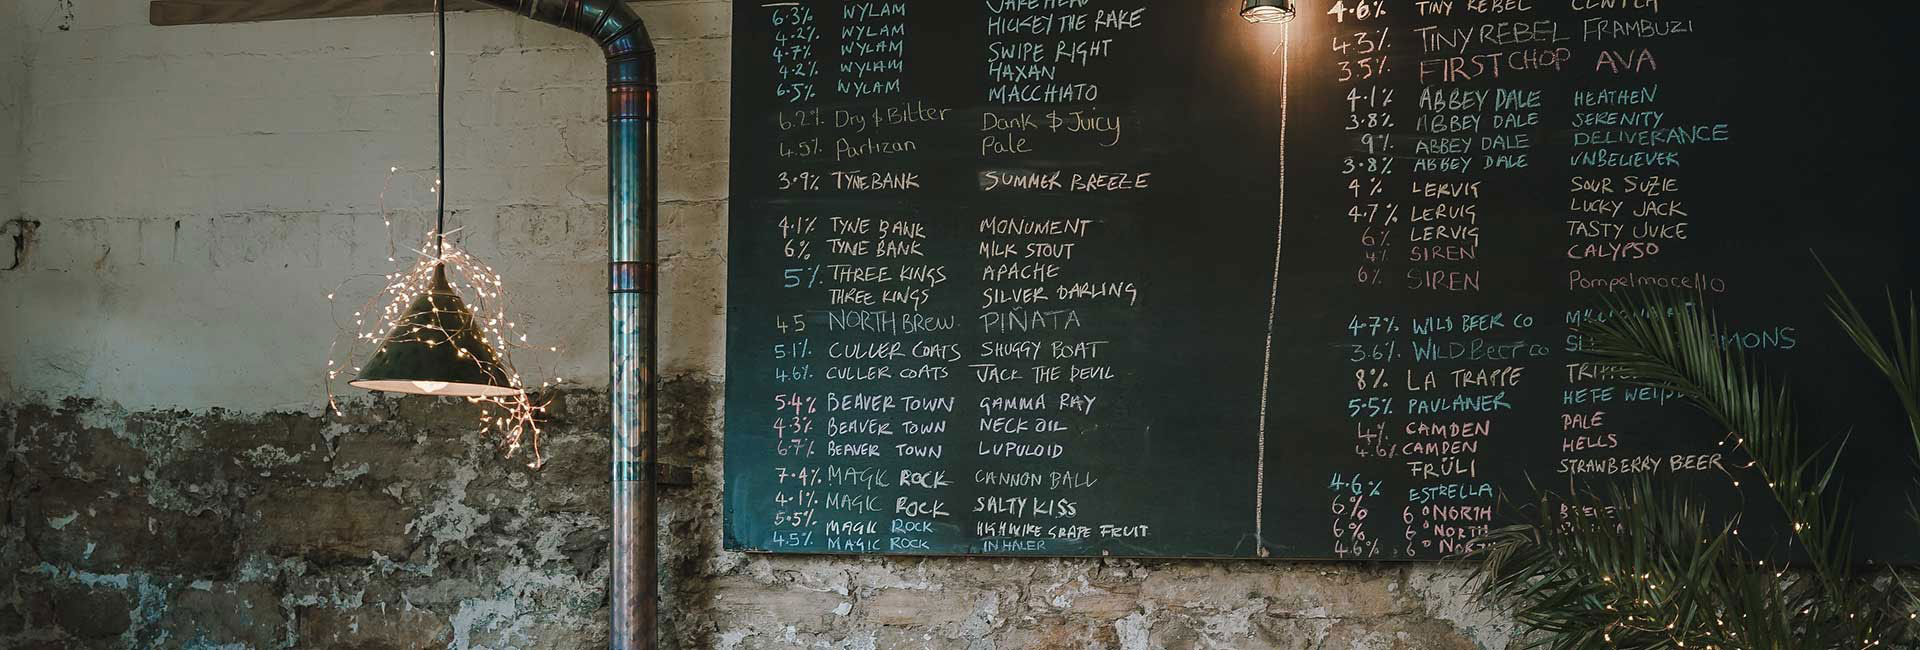 6.3% WYLAM
4.2% WYLAM HICKEY THE RAKE
4.7% WYLAM SWIPE RIGHT
4.2% WYLAM HAXAN
6.5% WYLAM MACCHIATO
6.2% Dry & Bitter Dank & Juicy
4.5% Partizan Pale
3.9% TYNEBANK SUMMER BREEZE
4.1% TYNE BANK MONUMENT
6% TYNE BANK MILK STOUT
5% THREE KINGS APACHE
THREE KINGS SILVER DARLING
4.5 NORTH BREW. PIÑATA
5.1% CULLER COATS SHUGGY BOAT
4.6% CULLER COATS JACK THE DEVIL
5.4% BEAVER TOWN GAMMA RAY
4.3% BEAVER TOWN NECK OIL
6.7% BEAVER TOWN LUPULOID
7.4% MAGIC ROCK CANNON BALL
4.1% MAGIC ROCK SALTY KISS
5.5% MAGIC ROCK HIGHWIRE GRAPE FRUIT
4.5% MAGIC ROCK INHALER
4.6% TINY REBEL CLWTCH
4.3% TINY REBEL FRAMBUZI
3.5% FIRST CHOP AVA
4.1% ABBEY DALE HEATHEN
3.8% ABBEY DALE SERENITY
9% ABBEY DALE DELIVERANCE
3.8% ABBEY DALE UNBELIEVER
4% LERVIG SOUR SUZIE
4.7% LERVIG LUCKY JACK
6% LERVIG TASTY JUICE
4% SIREN CALYPSO
6% SIREN Pompelmocello
4.7% WILD BEER CO
3.6% WILD BEER CO
8% LA TRAPPE
5.5% PAULANER HEFE
4% CAMDEN PALE
4.6% CAMDEN HELLS
FRÜLI STRAWBERRY BEER
4.6% ESTRELLA
6% 6° NORTH
6% 6° NORTH
4.6% 6° NORTH